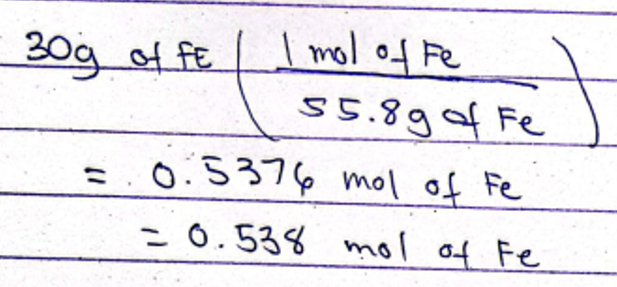 30g of fE ( 1 mol of Fe
55.8g of Fe )
= 0.5376 mol of Fe
= 0.538 mol of Fe